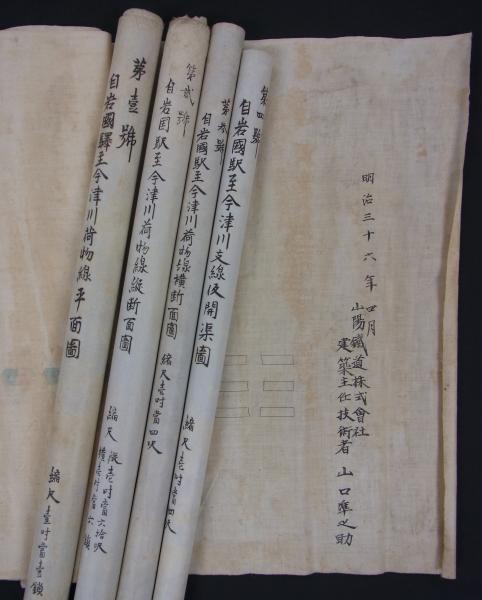 第壹號
自岩國驛至今津川荷物線平面圖
縮尺壹吋當壹鎖
第貳號
自岩国駅至今津川荷物線縦断面圖
縮尺 縦壹吋當六拾呎
横壹吋當六鎖
第参號
自岩國駅至今津川荷物線横断面圖
縮尺壹吋當四呎
第四號
自岩國駅至今津川支線伋開渠圖
縮尺壹吋當四呎
明治三十六年四月
山陽鐵道株式會社
建築主任技術者 山口準之助